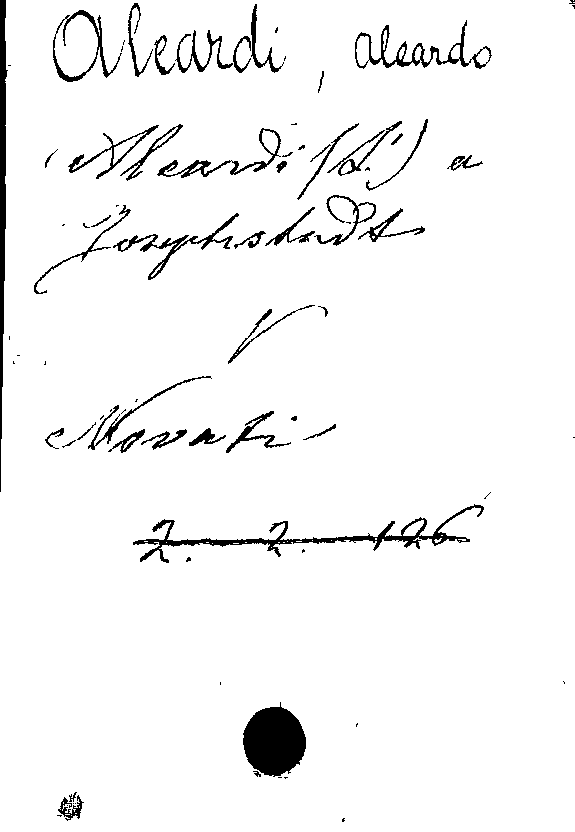 Aleardi, Aleardo
Aleardi (A.) a
Josephstadt
V
Novati
2. 2. 126